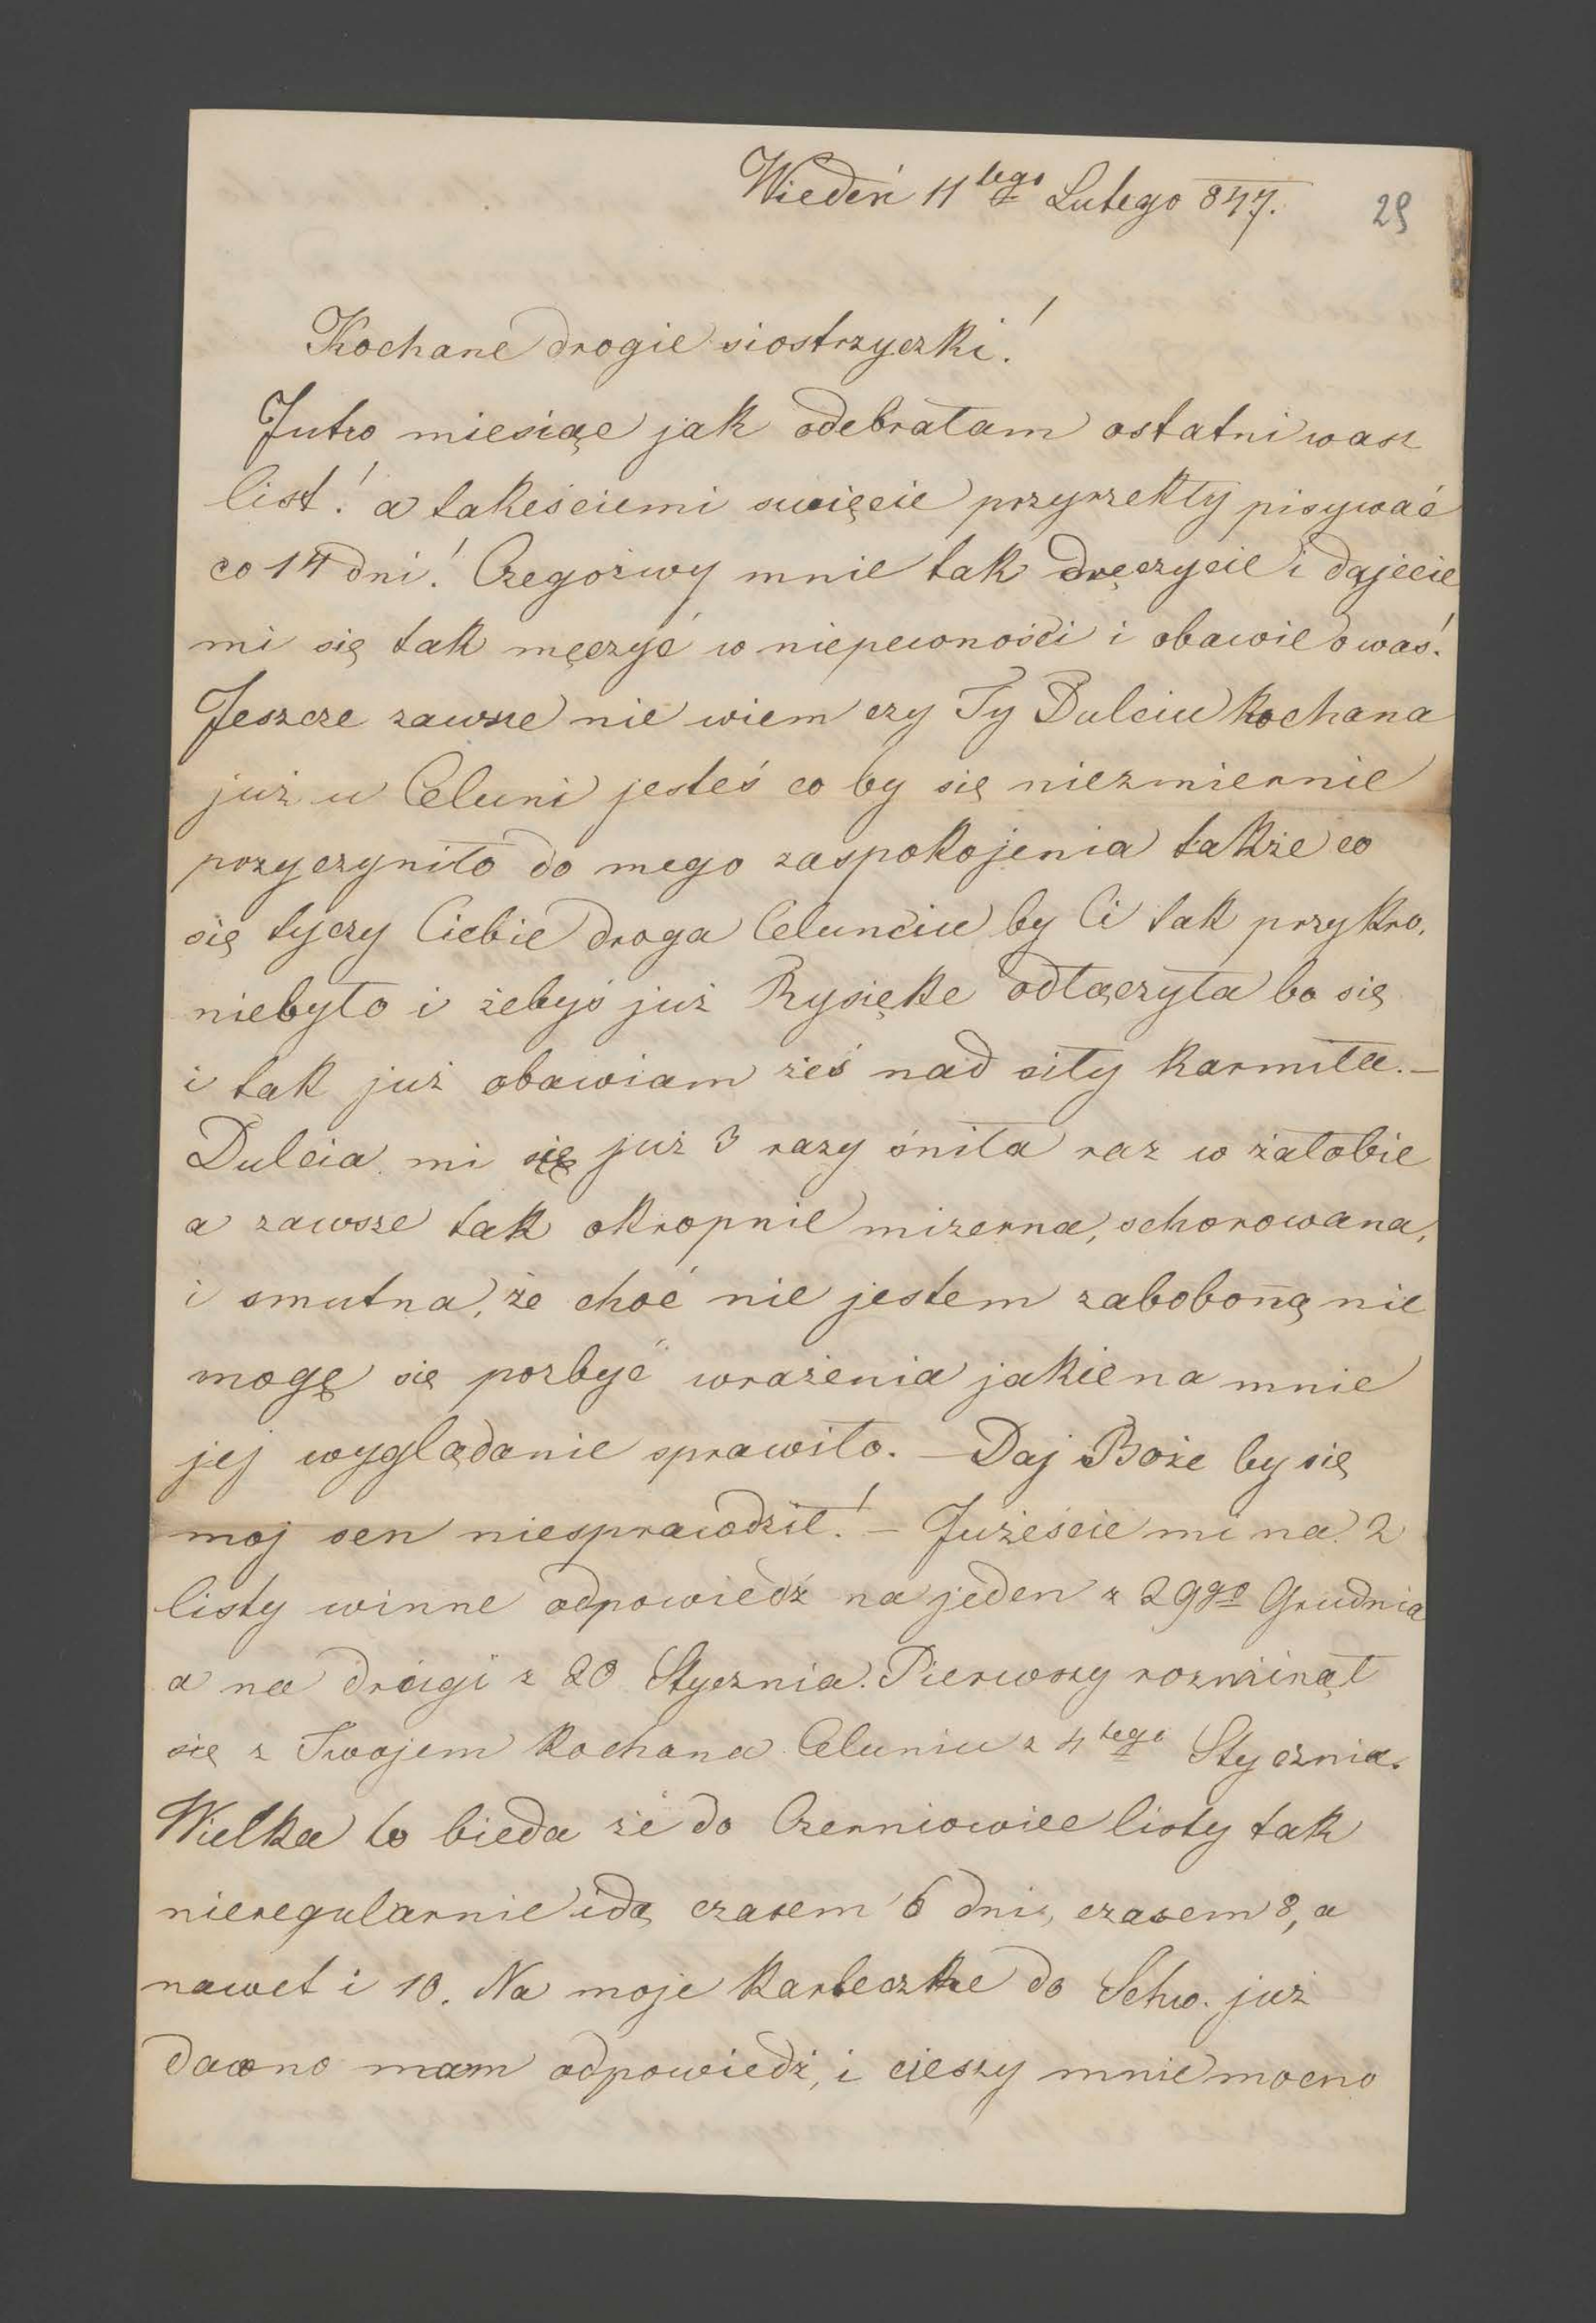 Wiedeń 11tego Lutego 847.
29
Kochane drogie siostrzyczki!
Jutro miesiąc jak odebrałam ostatni wasz
list! a takeściemi święcie przyrzekły pisywać
co 14 dni! Czegożwy mnie tak dręczycie i dajecie
mi się tak męczyć w niepewności i obawie o was!
Jeszcze zawsze nie wiem czy Ty Dulciu kochana
już u Celuni jesteś co by się niezmiernie
przyczyniło do mego zaspokojenia także co
się tyczy Ciebie droga Celunciu by Ci tak przykro,
niebyło i żebyś już Rysięke odłączyła bo się
i tak już obawiam żeś nad siły karmiła. —
Dulcia mi się już 3 razy śniła raz w żałobie
a zawsze tak okropnie mizerna, schorowana,
i smutna, że choć nie jestem zabobonną nie
mogę się pozbyć wrażenia jakie na mnie
jej wyglądanie sprawiło. — Daj Boże by się
moj sen niesprawdził! — Jużeście mi na 2
listy winne odpowiedź na jeden z 29go Grudnia
a na drugi z 20 Stycznia. Pierwszy rozminął
się z Twojem kochana Celuniu z 4tego Stycznia.
Wielka to bieda że do Czerniowiec listy tak
nieregularnie idą czasem 6 dni, czasem 8, a
nawet i 10. Na moje karteczke do Schw. już
dawno mam odpowiedź, i cieszy mnie mocno